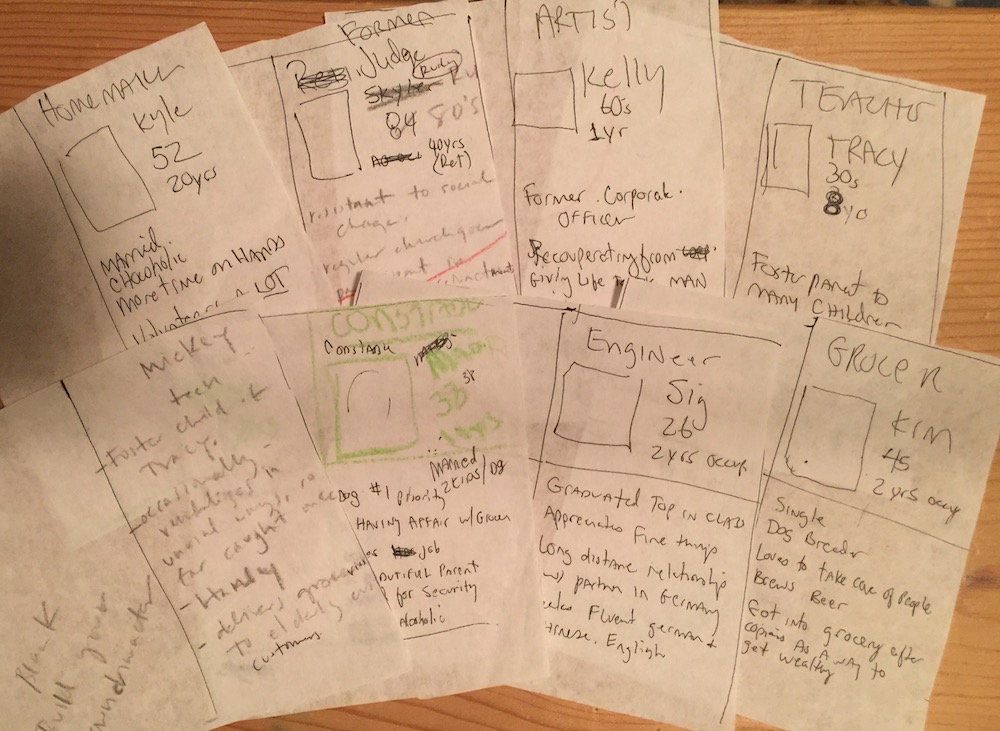 Homemaker
Kyle
52
20yrs
Married.
Alcoholic
More time on HANDS
Volunteers a LOT
Former
Judge
Rudy
Skyler
84 80's
40yrs
(Ret)
resistant to social
change.
regular churchgoer
ARTIST
Kelly
60's
1yr
Former Corporate
OFFICER
Recouperating from
Giving Life to MAN
TEACHER
TRACY
30s
8 yrs
Foster parent to
MANY CHILDREN
Mickey
tech
- Foster child of
Tracy.
- occasionally
indulges in
so
far caught once
- Handy
- delivers groceries
to elderly
customers
Blank
Build your
own character
CONSTABLE
Constable
38
38
Married
2 KIDS/DOG
Dog #1 priority
HAVING AFFAIR W/Grocer
job
BEAUTIFUL Parent
for Security
Alcoholic
Engineer
Sig
26
2 yrs occup
GRADUATED Top IN CLASS
Appreciates Fine things
Long distance relationship
w/ partner in Germany
Fluent german +
Chinese. English
GROCER
KIM
45
2 yrs occup
Single
Dog Breeder
Loves to take care of People
Brews Beer
Got into grocery after
copiers As A way to
get wealthy